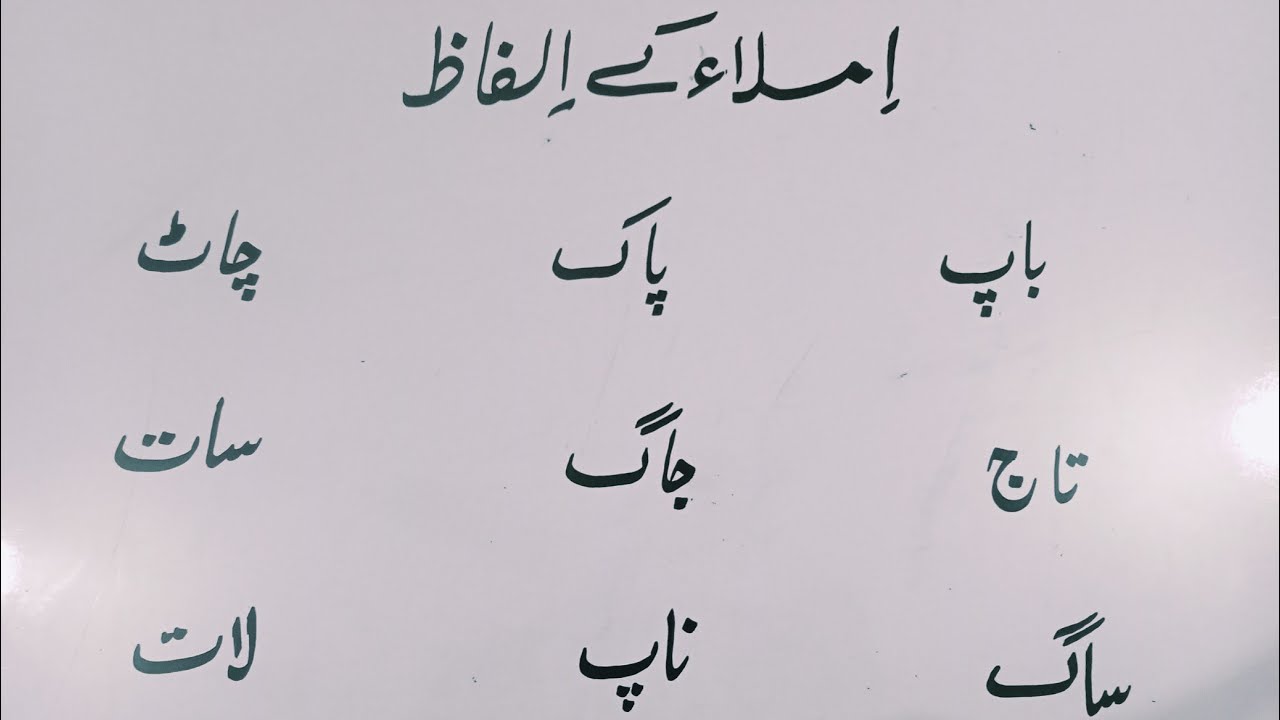 اِملاء کے اِلفاظ
باپ پاک چاٹ
تاج جاگ سات
ساگ ناپ لات